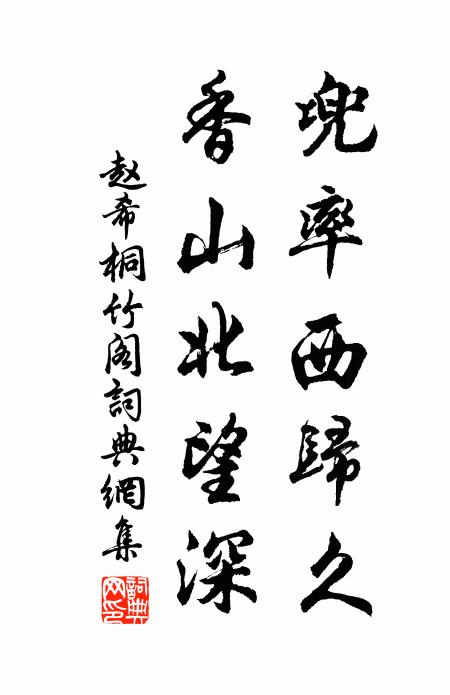 兜率西歸久
香山北望深
赵希桐竹阁詞典網集
詞典網印